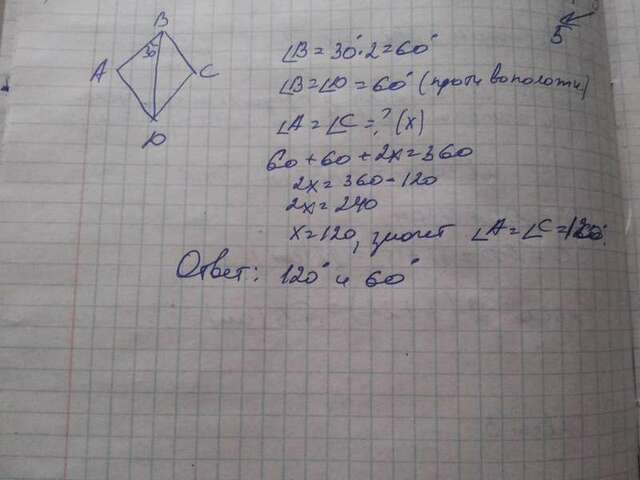 5
B
30°
A
C
D
∠B = 30°·2 = 60°
∠B = ∠D = 60° (противоположн)
∠A = ∠C = ? (x)
60 + 60 + 2x = 360
2x = 360 - 120
2x = 240
x = 120, значит ∠A = ∠C = 120°.
Ответ: 120° и 60°